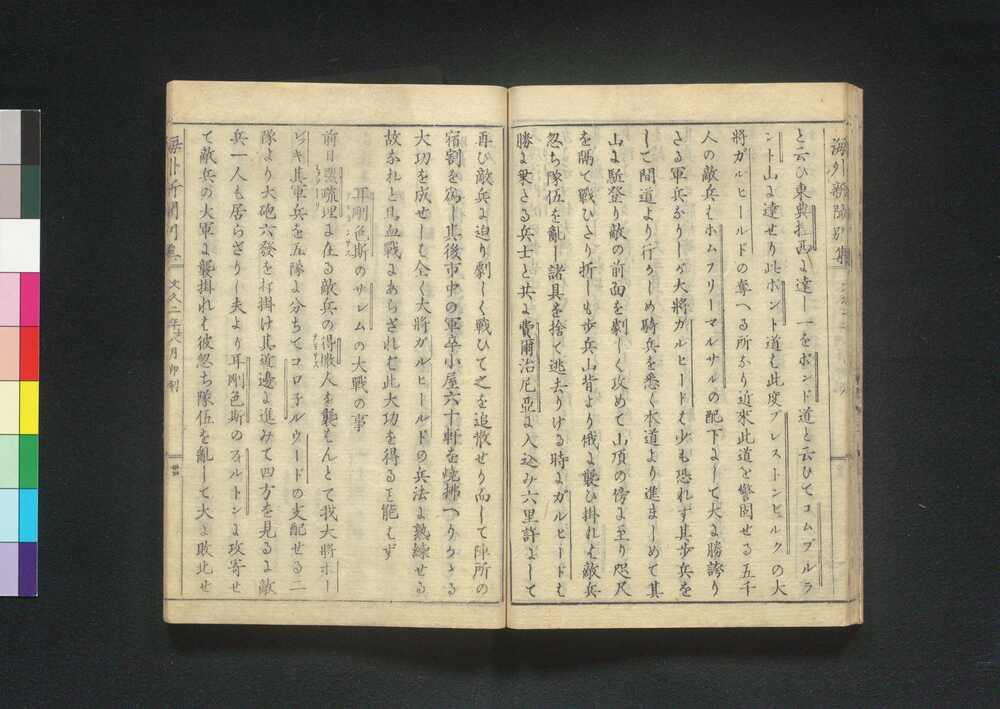 海外新聞別集
と云ひ東典拉西に達し一をポンド道と云ひてコムブルラ
ント山に達せり此ポント道は此度プレストンビルクの大
将ガルヒールドの奪へる所なり近来此道を警固せる五千
人の敵兵はホムフリーマルサルの配下にして大に勝誇り
さる軍兵なりしが大将ガルヒードは少も恐れず其歩兵を
して間道より行かしめ騎兵を悉く本道より進ましめて其
山に駈登り敵の前面を劇しく攻めて山頂の傍に至り咫尺
を隔て戦ひたり折しも歩兵山背より俄に襲ひ掛れは敵兵
忽ち隊伍を乱し諸具を捨て逃去りける時にガルヒードは
勝に乗さる兵士と共に費爾治尼亜に入込み六里許にして
再び敵兵に迫り劇しく戦ひて之を追散せり而して陣所の
宿割を為し其後市中の軍卒小屋六十軒を焼拂へりかゝる
大功を成せしは全く大将ガルヒールドの兵法に熟練せる
故なれと も血戦にあらされは此大功を得るに能はず
耳剛色斯のサレムの大戦の事
前日悪疏理に在る敵兵の得撒人を襲はんとて我大将ホー
ビキ其軍兵を五隊に分ちてコロネルウードの支配せる二
隊より大砲六發を打掛け其道邊に進みて四方を見るに敵
兵一人も居らざりし夫より耳剛色斯のフルトンに攻寄せ
て敵兵の大軍に襲掛れは彼忽ち隊伍を乱して大に敗北せ
海外新聞 文久二年八月印刻